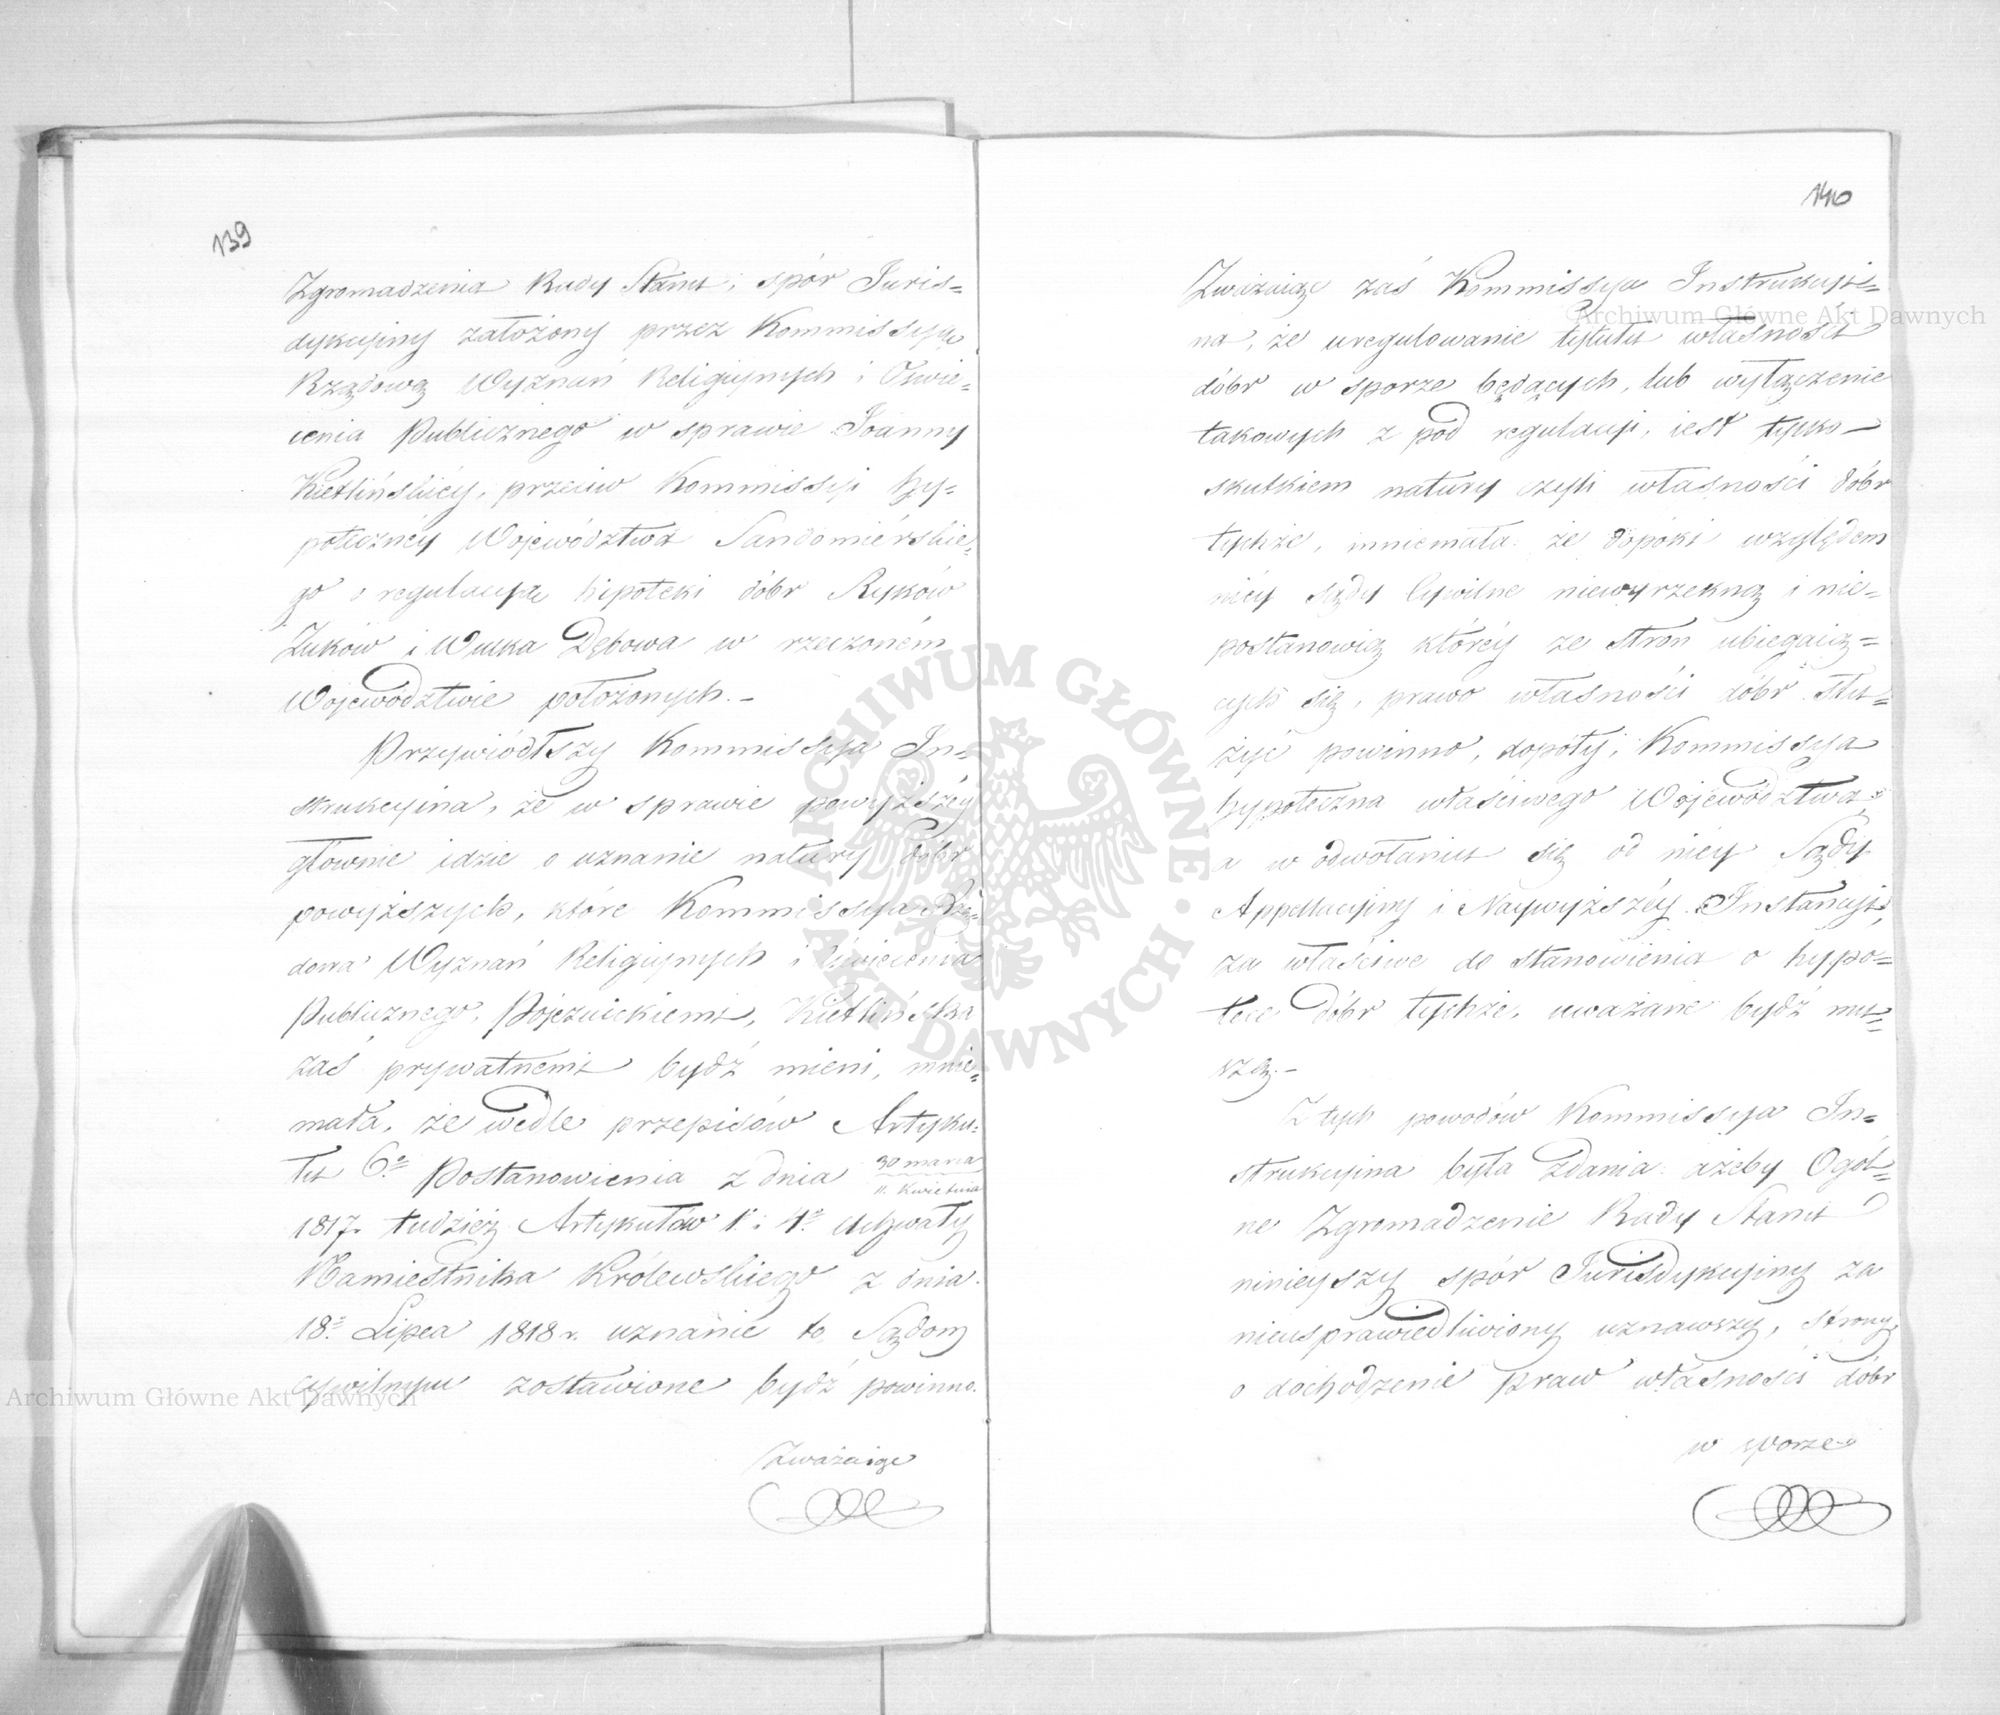 139
Zgromadzenia Rady Stanu, spór Juris=
dykcyiny założony przez Kommissyą
Rządową Wyznań Religijnych i Oświe=
cenia Publicznego w sprawie Joanny
Kietlińskiéy, przeciw Kommissyi hy=
potecznéy Województwa Sandomiérskie=
go o regulacyą hipoteki dóbr Ryków
Żuków i Wulka Dębowa w rzeczoném
Województwie położonych.–
Przywiódłszy Kommissya In=
strukcyina, że w sprawie powyższéy
głównie idzie o uznanie natury dóbr
powyższych, które Kommissya Rzą=
dowa Wyznań Religijnych i Oświecenia
Publicznego, Pojezuickiemi, Kietlińska
zaś prywatnemi bydź mieni, mnie=
mała, że wedle przepisów Artyku=
łu 6º Postanowienia z dnia 30 marca
11. Kwietnia
1817r. tudzież Artykułów 1º i 4º Uchwały
Namiestnika Królewskiego z dnia
18º Lipca 1818 r. uznanie to, Sądom
cywilnym zostawione bydź powinno.
Zważaiąc
140
Zważaiąc zaś Kommissya Instrukcyi=
na, że uregulowanie tytułu własności
dóbr w sporze będących, lub wyłączenie
takowych z pod regulacyi, iest tylko
skutkiem natury czyli własności dóbr
tychże, mniemała że dopóki względem
niéy sądy Cywilne niewyrzekną i nie=
postanowią któréy ze stron ubiegaią=
cych się, prawo własności dóbr słu=
żyć powinno, dopóty, Kommissya
hypoteczna właściwego Województwa
a w odwołaniu się od niéy Sądy
Appellacyiny i Naywyższéy Instancyi,
za właściwe do stanowienia o hypo=
tece dóbr tychże, uważane bydź mu=
szą.–
Z tych powodów Kommissya In=
strukcyina była zdania ażeby Ogól=
ne Zgromadzenie Rady Stanu
ninieyszy spór Jurisdykcyiny za
nieusprawiedliwiony uznawszy, strony
o dochodzenie praw własności dóbr
w sporze
Archiwum Główne Akt Dawnych
Archiwum Główne Akt Dawnych
ARCHIWUM GŁÓWNE · AKT DAWNYCH ·